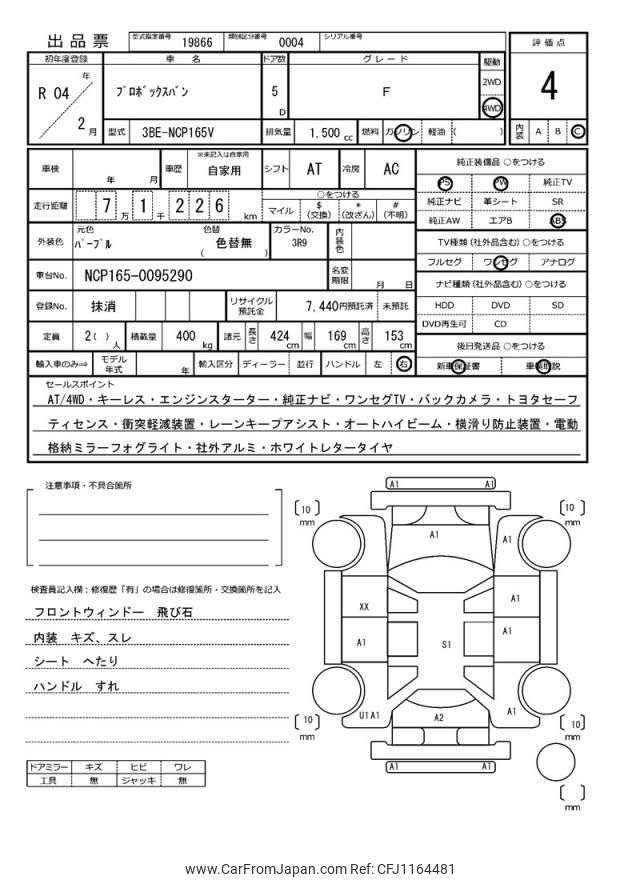 出品票 型式指定番号 19866 類別区分番号 0004 シリアル番号
評価点
4
内装 A B C
初年度登録 車名 ドア数 グレード 駆動
R 04 年 2 月 プロボックスバン 5 D F 2WD 4WD
型式 3BE-NCP165V 排気量 1.500 cc 燃料 ガソリン 軽油 ( )
車検 年 月 車歴 ※未記入は自家用 自家用 シフト AT 冷房 AC
走行距離 7 万 1 千 2 2 6 km ○をつける
マイル $ (交換) * (改ざん) # (不明)
外装色 元色 パープル 色替 色替無 ( ) カラーNo. 3R9 内装色
車台No. NCP165-0095290 名変期限 月 日
登録No. 抹消 リサイクル預託金 7,440円預託済 未預託
定員 2( ) 人 積載量 400 kg 諸元 長さ 424 cm 幅 169 cm 高さ 153 cm
輸入車のみ⇒ モデル年式 年 輸入区分 ディーラー 並行 ハンドル 左 右
純正装備品 ○をつける
PS PW 純正TV
純正ナビ 革シート SR
純正AW エアB ABS
TV種類 (社外品含む) ○をつける
フルセグ ワンセグ アナログ
ナビ種類 (社外品含む) ○をつける
HDD DVD SD
DVD再生可 CD
後日発送品 ○をつける
新車保証書 車輌取説
セールスポイント
AT/4WD・キーレス・エンジンスターター・純正ナビ・ワンセグTV・バックカメラ・トヨタセーフ
ティセンス・衝突軽減装置・レーンキープアシスト・オートハイビーム・横滑り防止装置・電動
格納ミラーフォグライト・社外アルミ・ホワイトレタータイヤ
注意事項・不具合箇所
検査員記入欄：修復歴「有」の場合は修復箇所・交換箇所を記入
フロントウィンドー 飛び石
内装 キズ、スレ
シート へたり
ハンドル すれ
ドアミラー キズ ヒビ ワレ
工具 無 ジャッキ 無
A1 A1
[10] mm [10] mm
A1 A1
XX A1
A1 S1 A1
U1 A1 A2 A1
[10] mm [10] mm
A1 A1
[ ] mm
www.CarFromJapan.com Ref: CFJ1164481